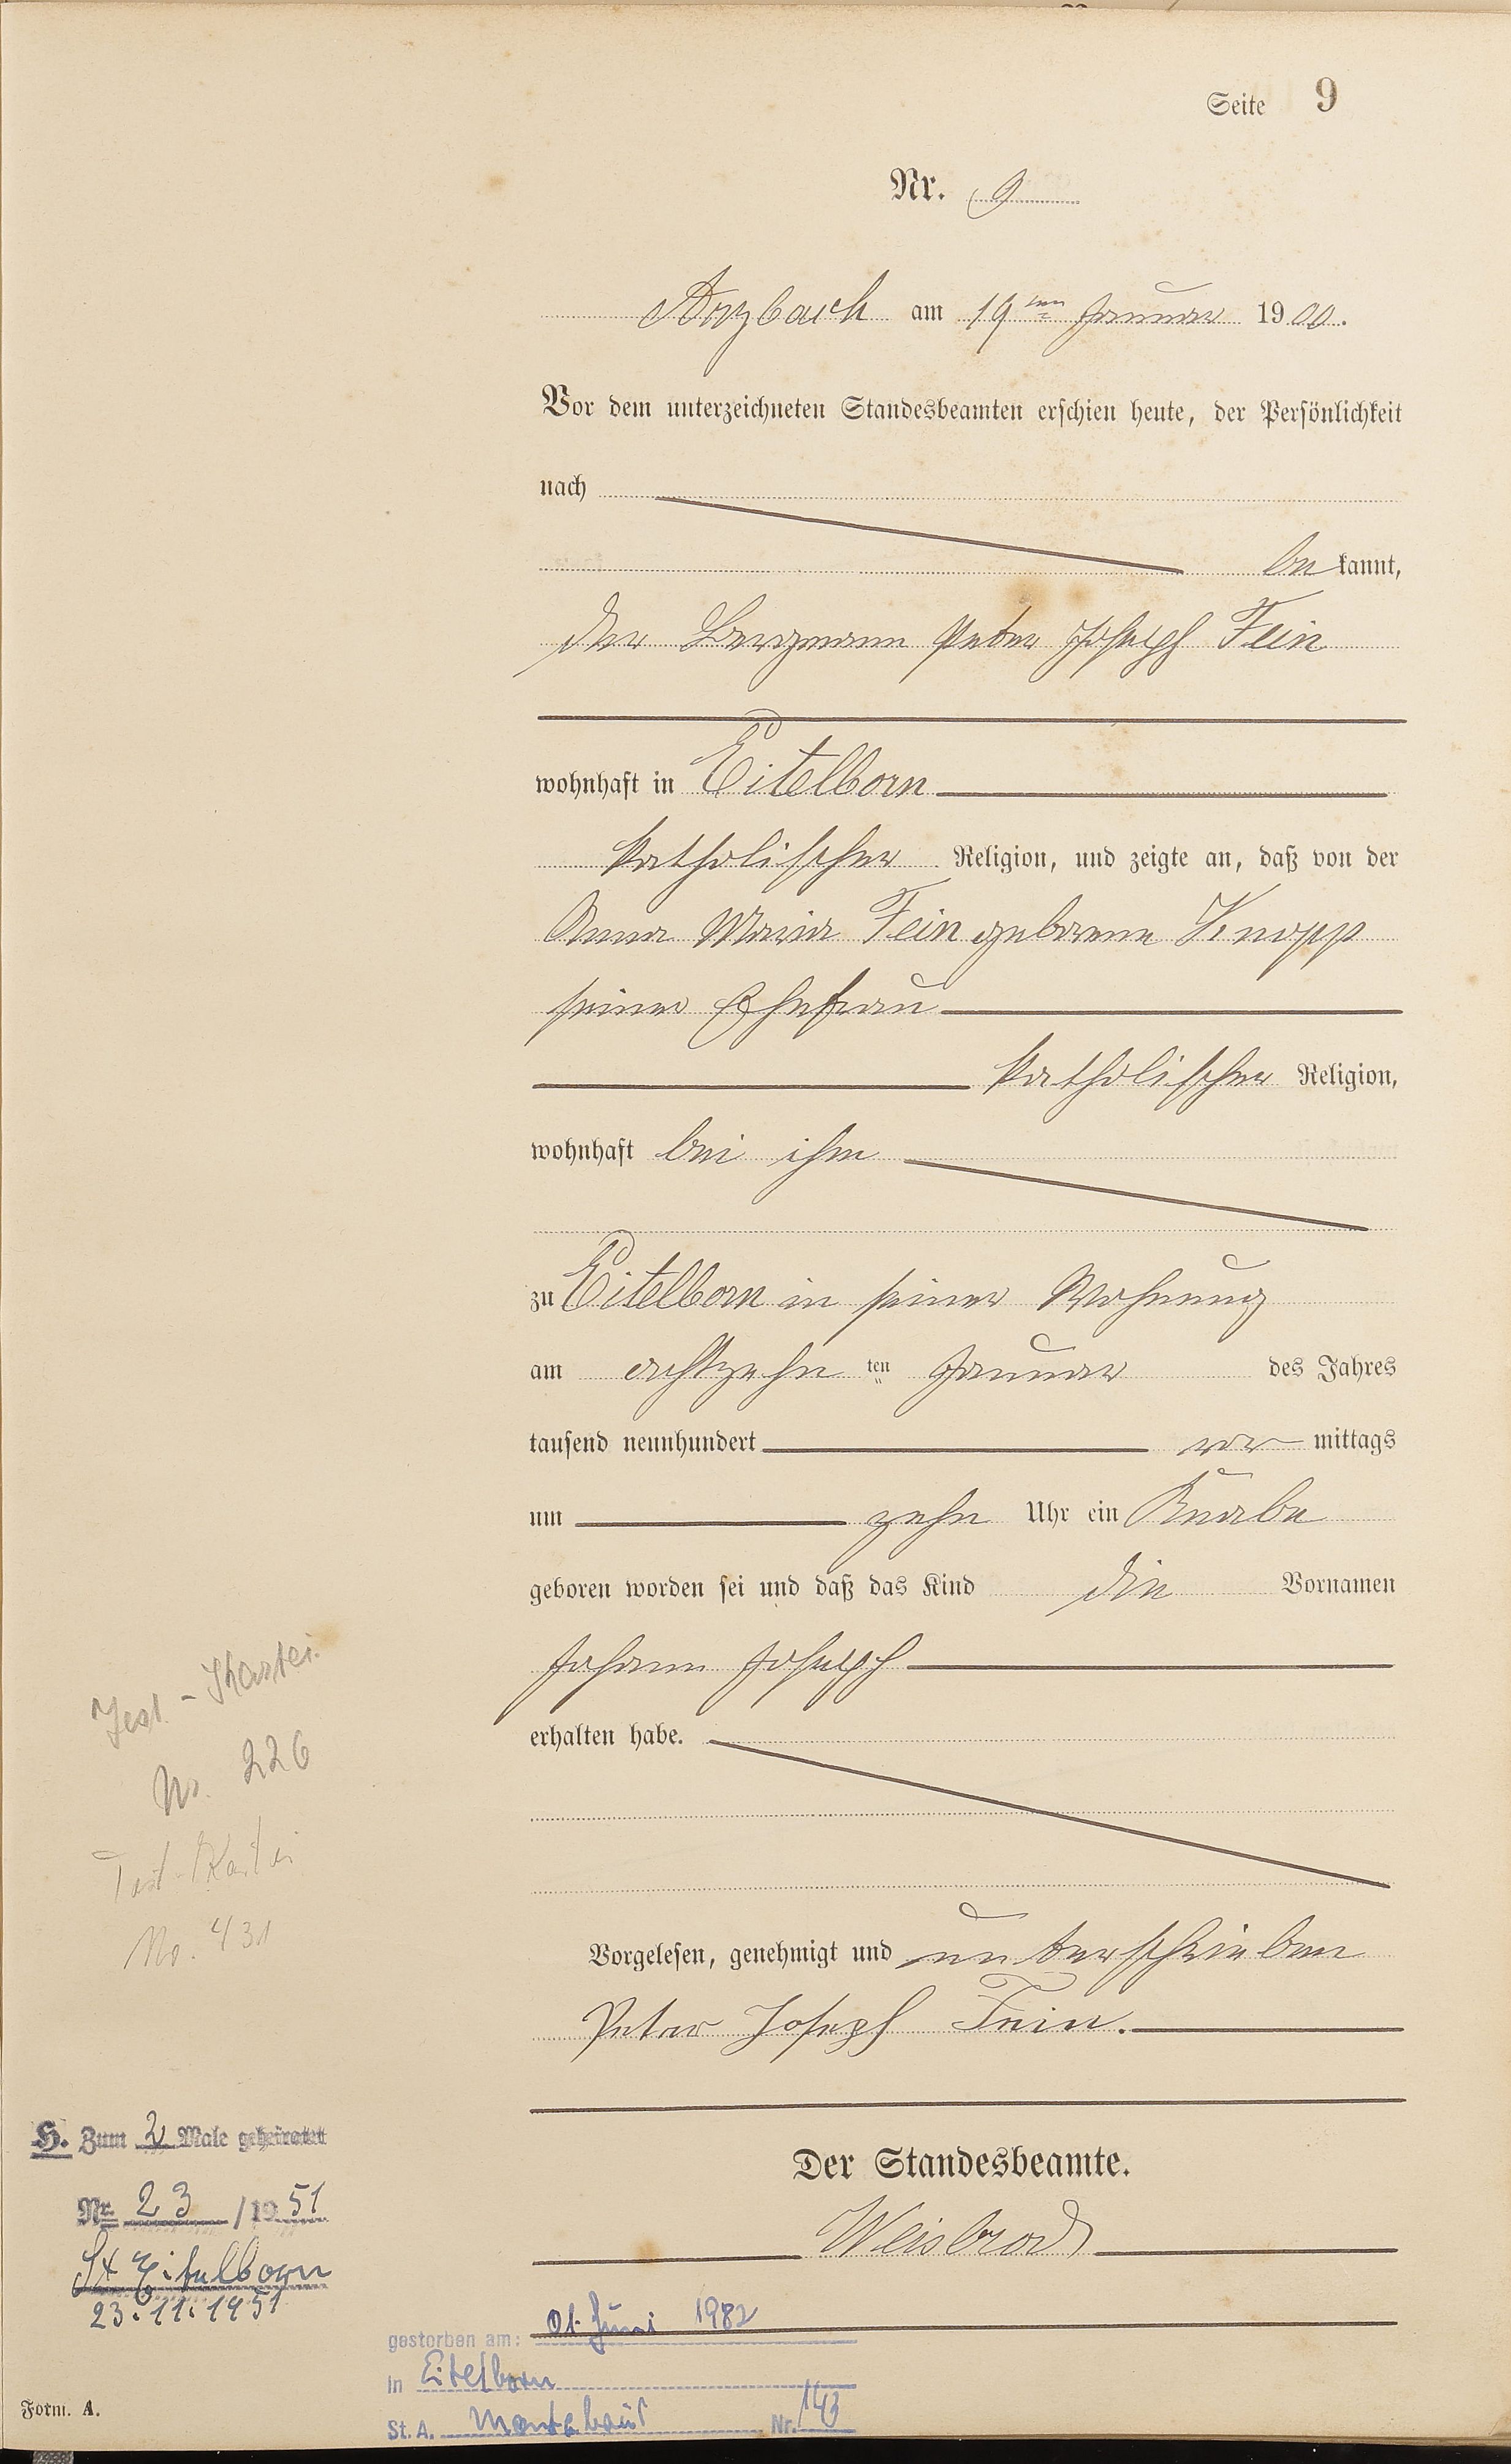 Seite 9
Nr. 9
Arzbach am 19ten Januar 1900.
Vor dem unterzeichneten Standesbeamten erschien heute, der Persönlichkeit
nach
be kannt,
der Bergmann Peter Joseph Fein
wohnhaft in Eitelborn
katholischer Religion, und zeigte an, daß von der
Anna Maria Fein geborene Knopp
seiner Ehefrau
katholischer Religion,
wohnhaft bei ihm
zu Eitelborn in seiner Wohnung
am achtzehn ten Januar des Jahres
tausend neunhundert vor mittags
um zehn Uhr ein Knabe
geboren worden sei und daß das Kind die Vornamen
Johann Joseph
erhalten habe.
Vorgelesen, genehmigt und unterschrieben
Peter Joseph Fein.
Der Standesbeamte.
Weisbrod
Test-Kartei
No. 226
Test-Kartei
No. 431
H. Zum 2 Male geheiratet
Nr. 23 /1951
St Eitelborn
23.11.1951
gestorben am: 01. Juni 1982
in Eitelborn
St. A. Montabaur Nr. 143
Form. A.